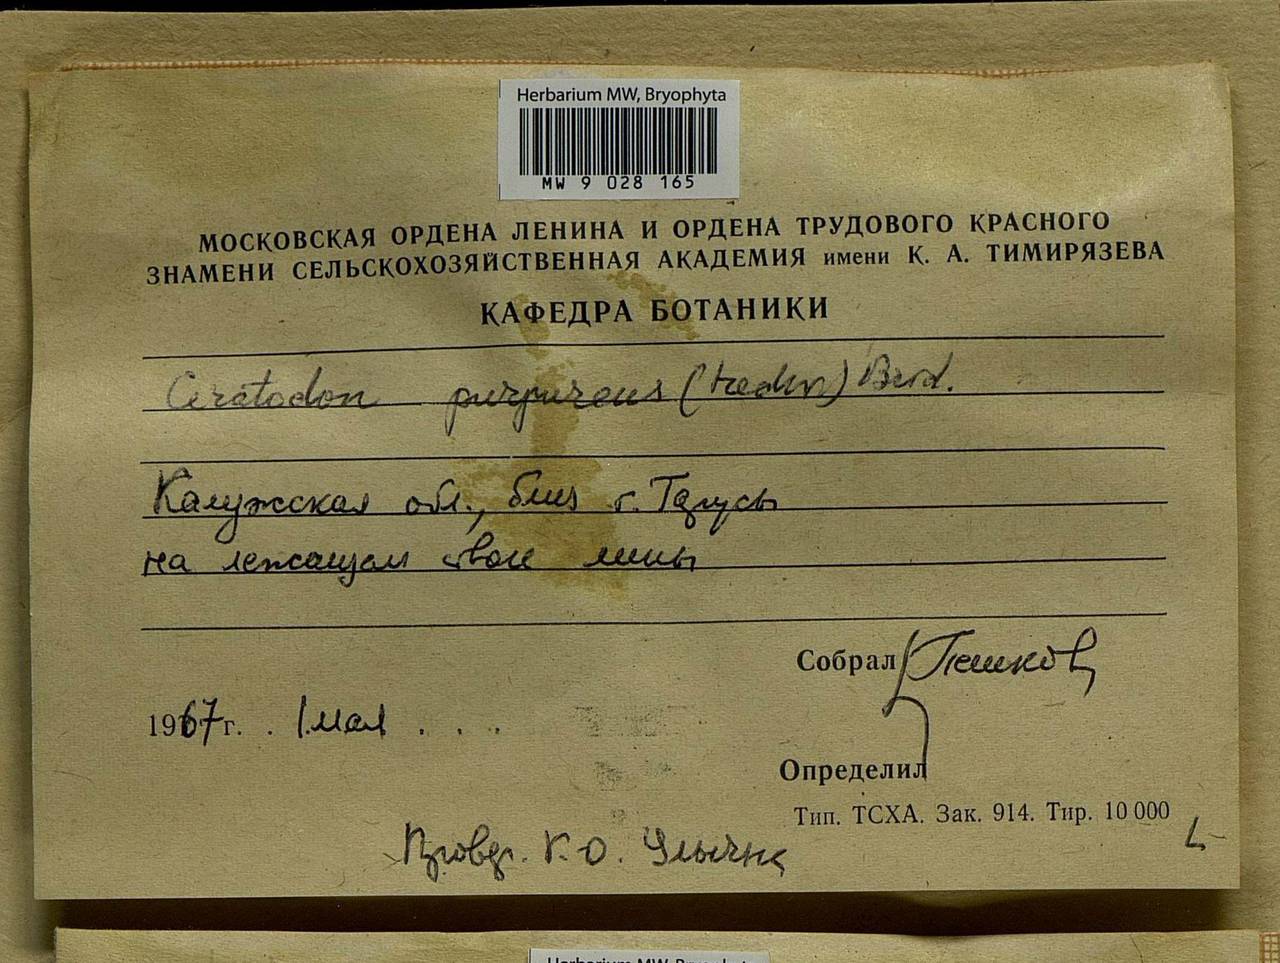 Herbarium MW, Bryophyta
MW 9 028 165
МОСКОВСКАЯ ОРДЕНА ЛЕНИНА И ОРДЕНА ТРУДОВОГО КРАСНОГО
ЗНАМЕНИ СЕЛЬСКОХОЗЯЙСТВЕННАЯ АКАДЕМИЯ имени К. А. ТИМИРЯЗЕВА
КАФЕДРА БОТАНИКИ
Ceratodon purpureus (Hedw) Brid.
Калужская обл., близ г. Тарусы
на лежащем стволе липы
Собрал Пешков
1967 г. . 1 мая . . .
Определил
Тип. ТСХА. Зак. 914. Тир. 10 000
К. О. Улычна
Herbarium MW, Bryophyta